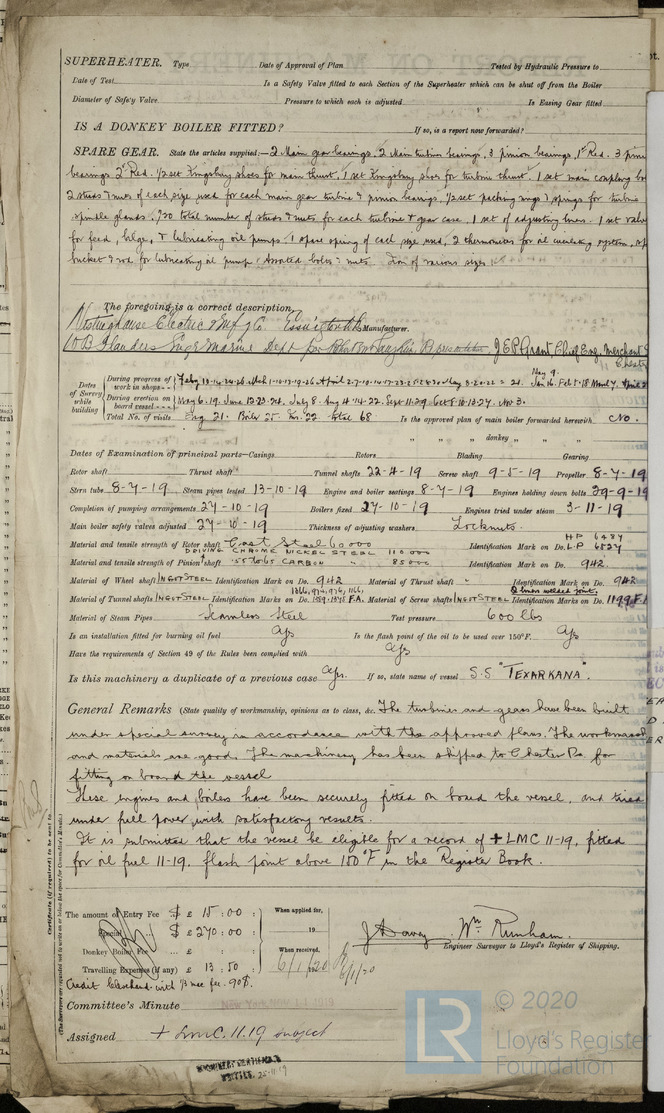 SUPERHEATER. Type Date of Approval of Plan Tested by Hydraulic Pressure to
Date of Test Is a Safety Valve fitted to each Section of the Superheater which can be shut off from the Boiler
Diameter of Safety Valve Pressure to which each is adjusted Is Easing Gear fitted
IS A DONKEY BOILER FITTED? If so, is a report now forwarded?
SPARE GEAR. State the articles supplied:— 2 Main gear bearings, 2 Main turbine bearings, 3 pinion bearings, 1st Red. 3 pinion
bearings 2nd Red. 1/2 set Kingsbury shoes for main thrust, 1 set Kingsbury shoes for turbine thrust. 1 set main coupling bo
2 studs & nuts of each size used for each main gear turbine & pinion bearings. 1/2 set packing rings & springs for turbine
spindle glands, 1/20 total number of studs & nuts for each turbine & gear case. 1 set of adjusting liners. 1 set valves
for feed, bilge, & lubricating oil pumps. 1 spare spring of each size used, 2 thermometers for oil circulating system,
bucket & rod for lubricating oil pump. Assorted bolts & nuts. Iron of various sizes.
The foregoing is a correct description,
Westinghouse Electric & Mfg Co. Essington Manufacturer.
W B Flanders Engr Marine Dept J.E.P. Grant Chief Eng. Merchant S
Chester
Dates of Survey while building
During progress of work in shops - - Feby 13-14-24-26 Mch 1-10-13-19-26 April 2-7-10-16-17-23-25-28-30 May 3-20-22 = 21. Jan 16. Feb 7-18 March 4, April 2
May 9.
During erection on board vessel - - - May 6-19. June 12-23-24. July 8. Aug 4-14-22. Sept 11-29. Oct 8-10-13-27. Nov 3.
Total No. of visits Eng 21. Boiler 25. 22 Total 68 Is the approved plan of main boiler forwarded herewith No.
" " " donkey " " "
Dates of Examination of principal parts—Casings Rotors Blading Gearing
Rotor shaft Thrust shaft Tunnel shafts 22-4-19 Screw shaft 9-5-19 Propeller 8-7-19
Stern tube 8-7-19 Steam pipes tested 13-10-19 Engine and boiler seatings 8-7-19 Engines holding down bolts 29-9-19
Completion of pumping arrangements 27-10-19 Boilers fixed 27-10-19 Engines tried under steam 3-11-19
Main boiler safety valves adjusted 27-10-19 Thickness of adjusting washers Locknuts.
Material and tensile strength of Rotor shaft Cast Steel 60000 Identification Mark on Do. HP 6484
L.P 6527
DRIVING CHROME NICKEL STEEL 110000
Material and tensile strength of Pinion shaft .55 to 65 CARBON " 85000 Identification Mark on Do. 942.
Material of Wheel shaft INGOT STEEL Identification Mark on Do. 942 Material of Thrust shaft " Identification Mark on Do. 942
Material of Tunnel shafts INGOT STEEL Identification Marks on Do. 1366, 974, 976, 1166, 1459-1475 F.A. Material of Screw shafts INGOT STEEL Identification Marks on Do. 1199 F.A
Material of Steam Pipes Seamless Steel Test pressure 600 lbs
Is an installation fitted for burning oil fuel Yes Is the flash point of the oil to be used over 150°F. Yes
Have the requirements of Section 49 of the Rules been complied with Yes
Is this machinery a duplicate of a previous case Yes. If so, state name of vessel S.S "TEXARKANA".
General Remarks (State quality of workmanship, opinions as to class, &c. The turbines and gears have been built
under special survey in accordance with the approved plans. The workmanship
and materials are good. The machinery has been shipped to Chester Pa. for
fitting on board the vessel
These engines and boilers have been securely fitted on board the vessel, and tried
under full power, with satisfactory results.
It is submitted that the vessel be eligible for a record of + LMC 11-19, fitted
for oil fuel 11-19, flash point above 150°F in the Register Book.
Certificate (if required) to be sent to
(The Surveyors are requested not to write on or below the space for Committee's Minute.)
The amount of Entry Fee $ £ 15 : 00 : When applied for,
Special $ £ 270 : 00 : 19
Donkey Boiler Fee £ : : When received,
Travelling Expenses (if any) £ 13 : 50 : 6/1/20
6/1/20
J Davey Wm Runham.
Engineer Surveyor to Lloyd's Register of Shipping.
Committee's Minute New York NOV 11 1919
Assigned + LMC. 11.19
25-11-19
© 2020
LR
Lloyd's Register
Foundation